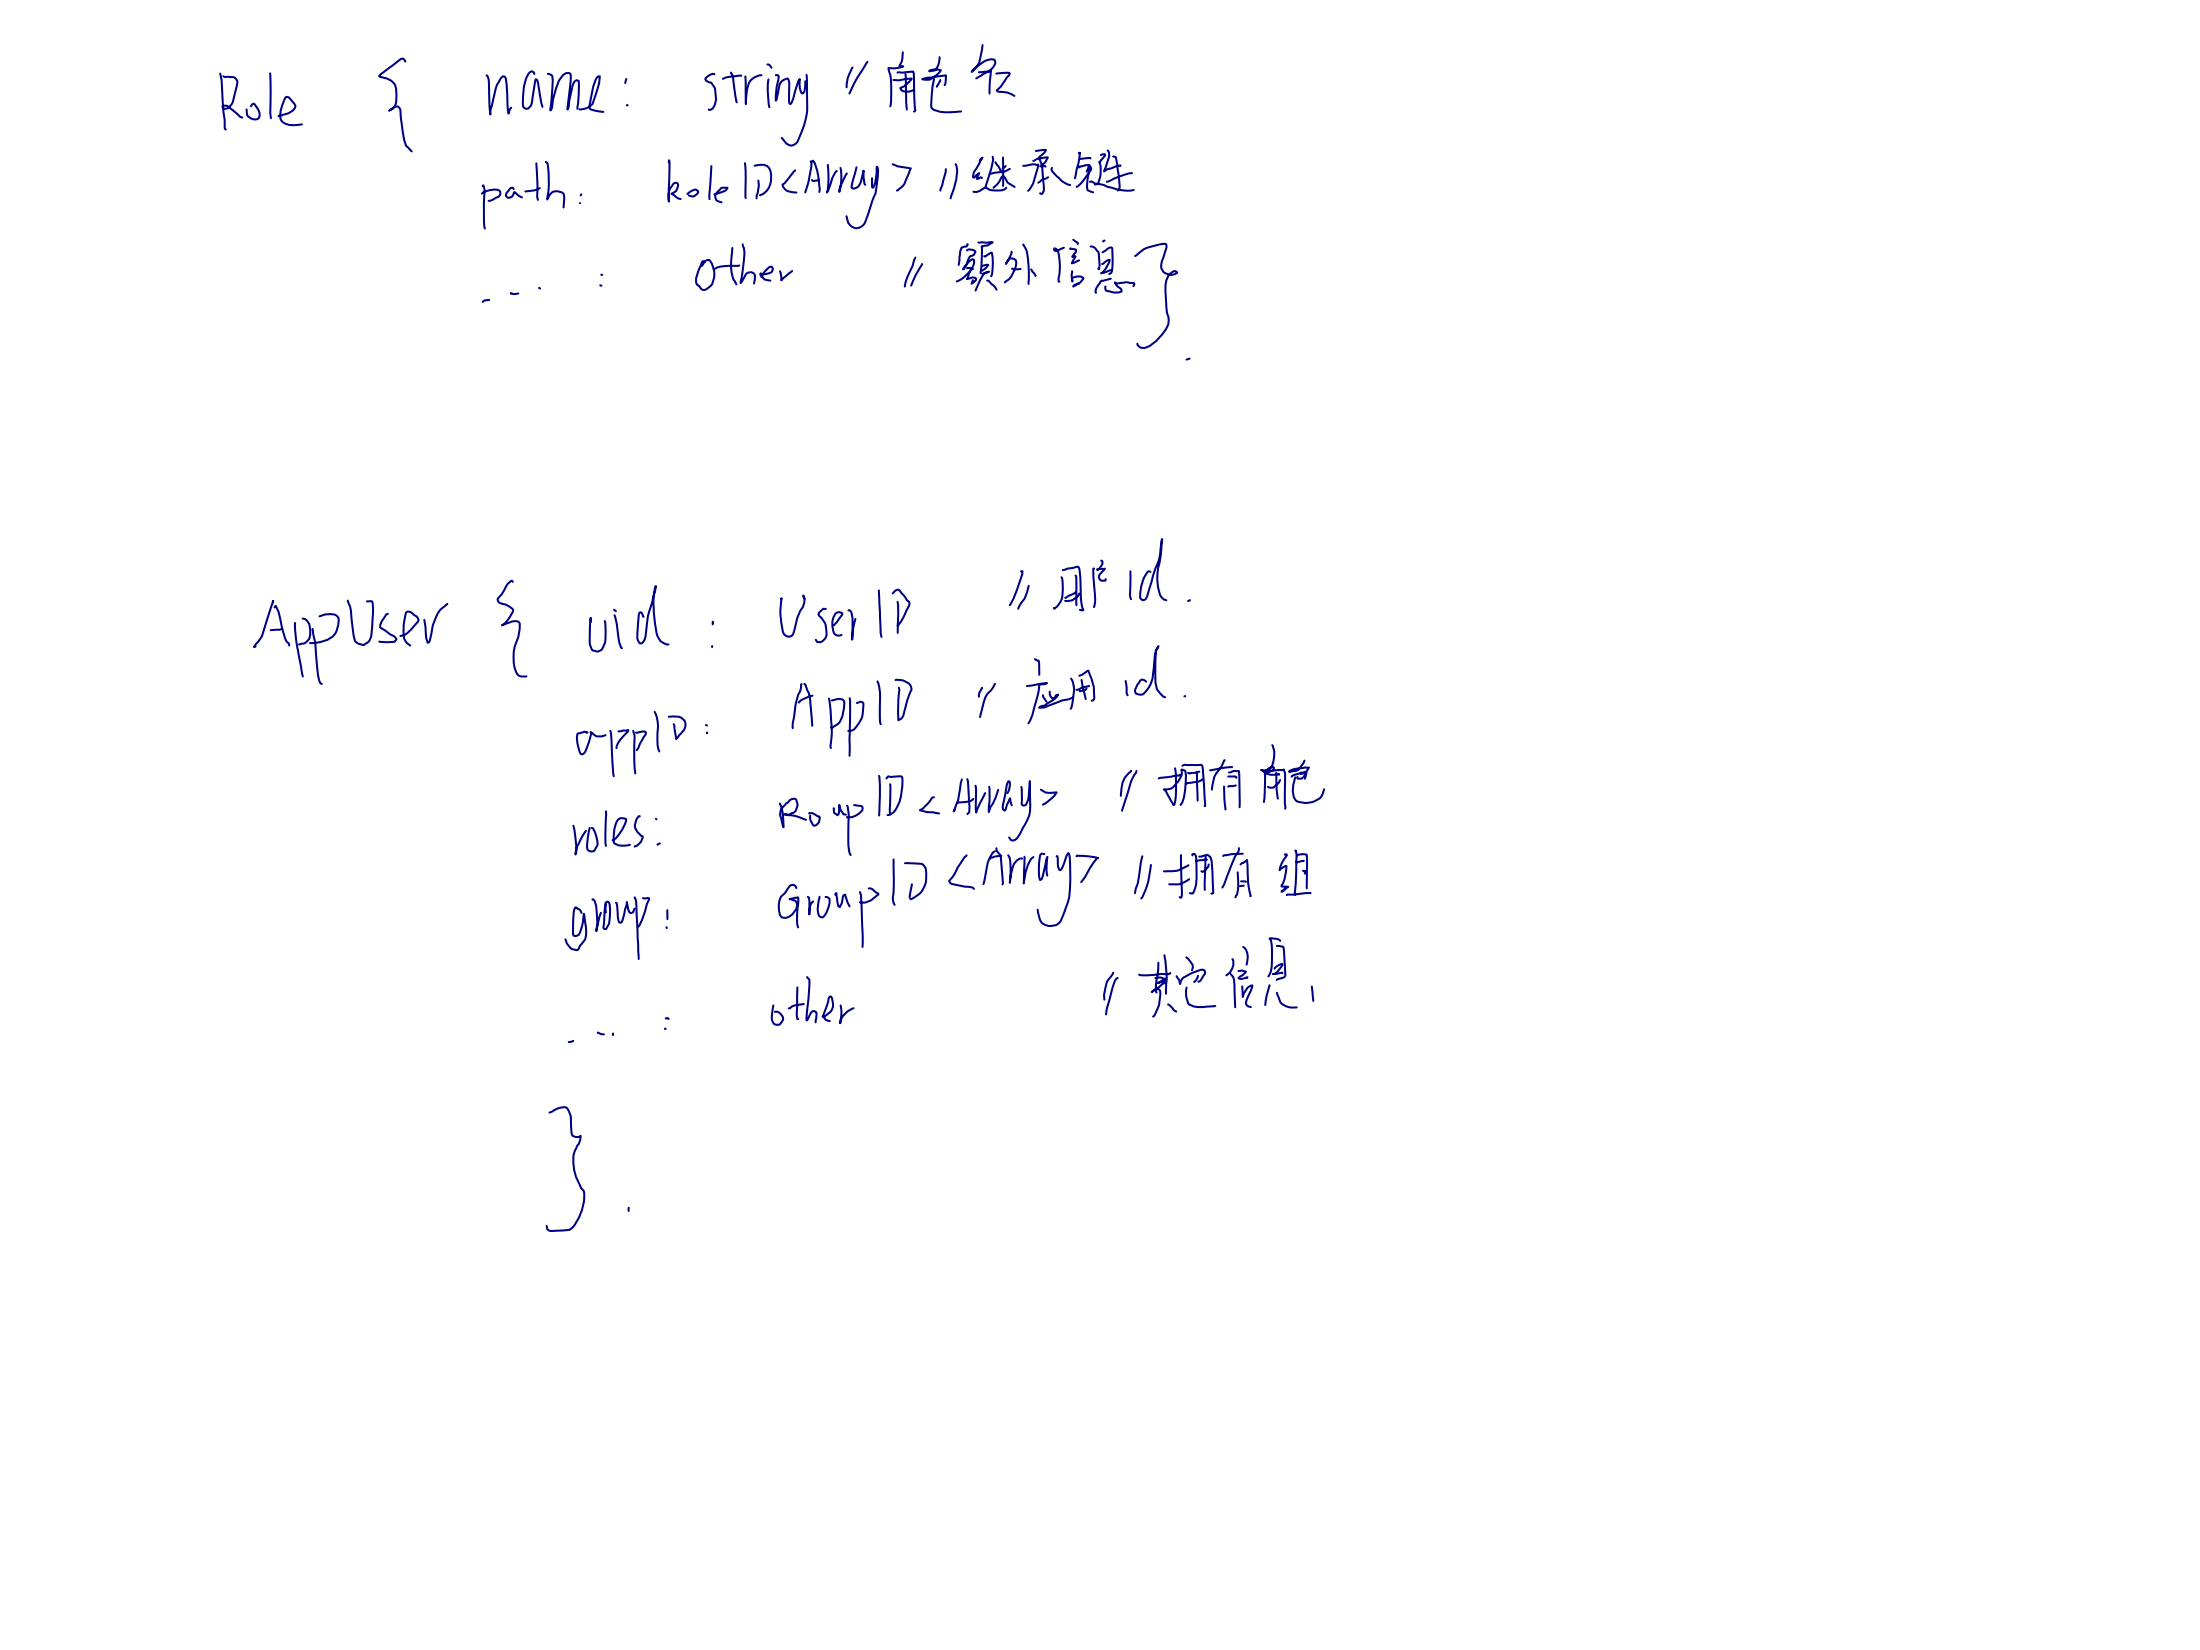 Role { name: string // 角色名
path: RoleID<Array> // 继承链
... : other // 额外信息 }.
AppUser { uid: UserID // 用户id.
appID: AppID // 应用id.
roles: RoupID<Array> // 拥有角色
group: GroupID<Array> // 拥有组
... : other // 其它信息.
}.